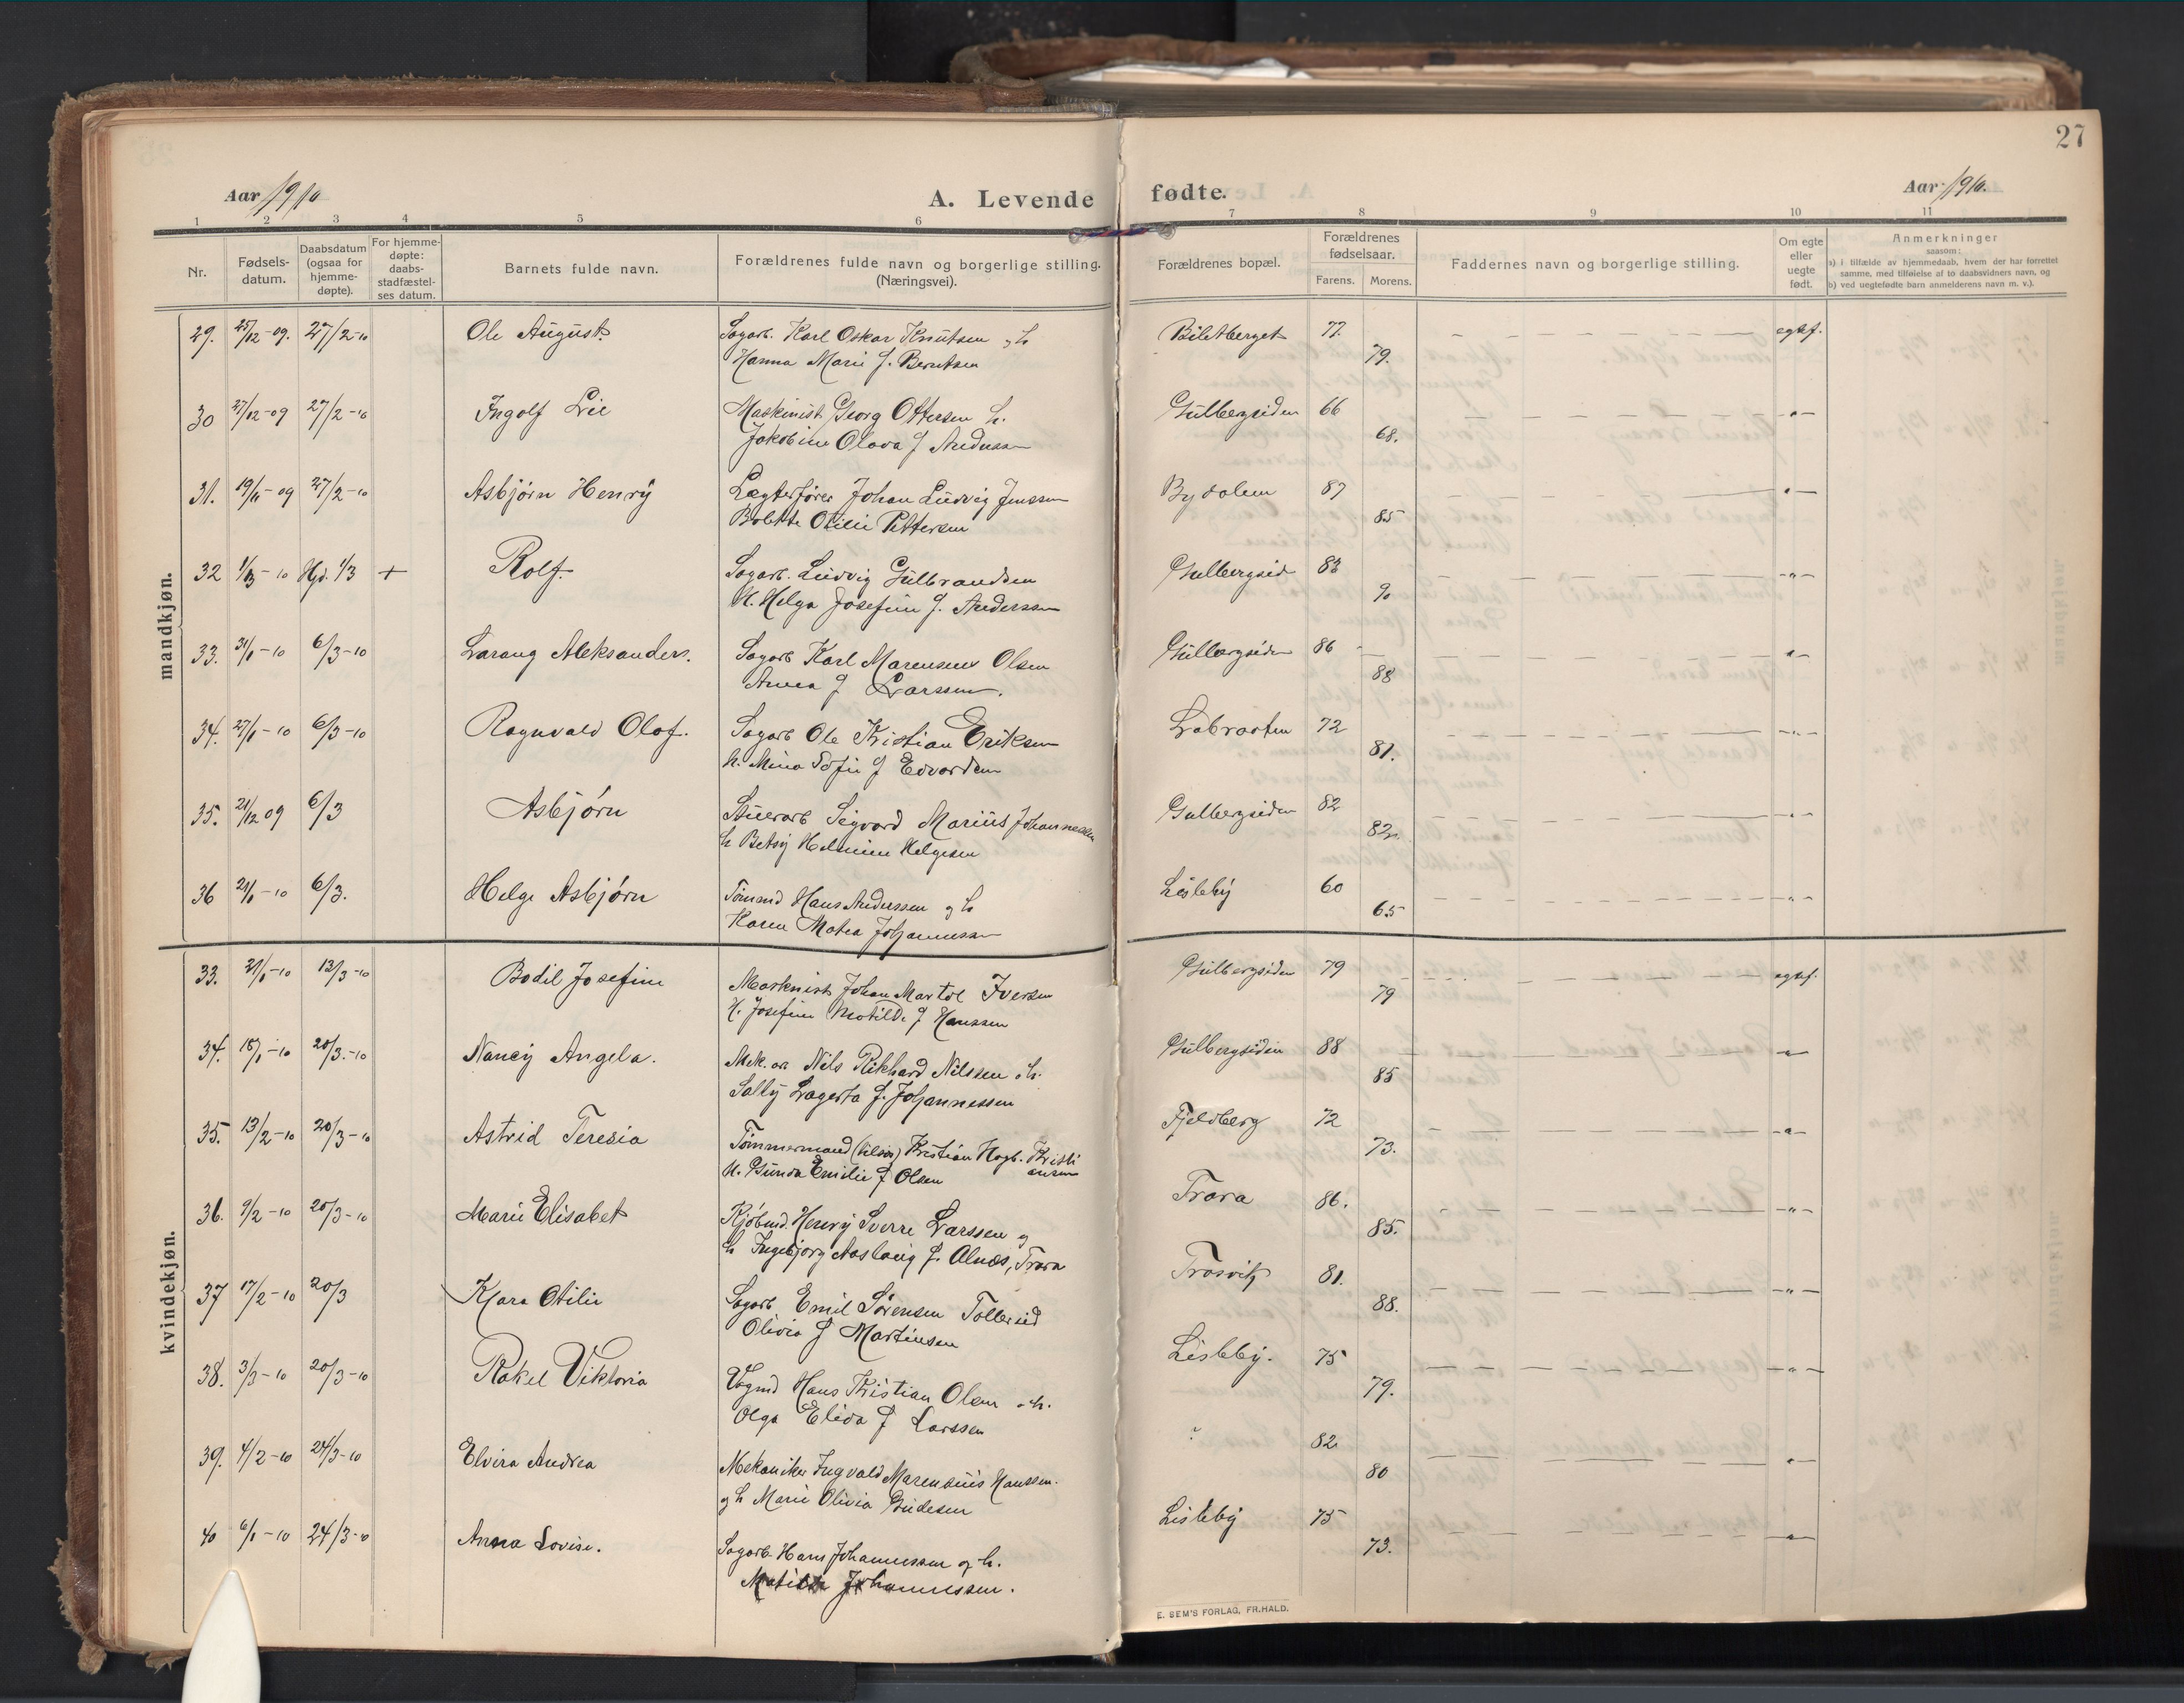 27
Aar 1910
A. Levende fødte.
Aar 1910.
1 2 3 4 5 6 7 8 9 10 11
Nr.
Fødsels-
datum.
Daabsdatum
(ogsaa for
hjemme-
døpte).
For hjemme-
døpte:
daabs-
stadfæstel-
ses datum.
Barnets fulde navn.
Forældrenes fulde navn og borgerlige stilling.
(Næringsvei).
Forældrenes bopæl.
Forældrenes
fødselsaar.
Farens. Morens.
Faddernes navn og borgerlige stilling.
Om egte
eller
uegte
født.
Anmerkninger
saasom:
a) i tilfælde av hjemmedaab, hvem der har forrettet
samme, med tilføielse af to daabsvidners navn, og
b) ved uegtefødte barn anmelderens navn m. v.).
mandkjøn.
29. 25/12-09. 27/2-10 Ole August. Sagarb. Karl Oskar Knutsen og h 77. egtef.
Hanna Marie f. Berntsen 79.
30 27/12-09 27/2-10 Ingolf Lie Maskinist Georg Ottersen h. Gulbergsiden 66 -"-
Jakobine Olava f Anderssen 68.
31. 19/11-09 27/2-10 Asbjørn Henry Lægterfører Johan Ludvig Jenssen Bydalen 87 -"-
Bolette Otilie Pettersen 85
32 1/3-10 Hjd. 1/3 + Rolf. Sagarb. Ludvig Gulbrandsen Gulbergsid 83 -"-
H. Helga Josefine f. Anderssen 90
33. 31/1-10 6/3-10 Aleksander. Sagarb Karl Marensius Olsen Gulbergsiden 86 -"-
Anna f Larssen. 88
34. 27/1-10 6/3-10 Ragnvald Olaf. Sagarb Ole Kristian Eriksen Labraaten 72 -"-
h. Mina Sofie f Edvardsen 81.
35. 21/12 09 6/3 Asbjørn Stuerarb Sigvard Marius Johannessen Gulbergsiden 82 -"-
h Betsy Helmine Helgesen 82.
36 21/1-10 6/3. Helge Asbjørn Tømmd Hans Anderssen og h Lisleby 60 -"-
Karen Matea Johannessen 65
kvindekjøn.
33. 21/1-10 13/3-10 Bodil Josefine Maskinist Johan Iversen Gulbergsiden 79 egtef.
H. Josefine Matilde f Hanssen 79
34. 18/1-10 20/3-10 Nancy Angela. Mek. arb Nils Rikhard Nilssen h. Gulbergsiden 88 -"-
Sally Lagerta f. Johannessen 85
35. 13/2-10 20/3-10 Astrid Teresia Tømmermand Kristian Hagb. Kristi
ansen Fjeldberg 72 -"-
H. Gunda Emilie f Olsen 73.
36. 9/2-10 20/3-10 Marie Elisabet Kjøbmd. Henry Sverre Larssen og Trara 86. -"-
h Ingebjorg Aaslaug f. Alnæs, Trara 85.
37 17/2-10 20/3 Klara Otilie Sagarb. Emil Sørensen Tollerud Trosvik 81. -"-
Olivia f Martinsen 88.
38. 3/3-10 20/3-10 Rakel Viktoria Vogmd Hans Kristian Olsen h. Lisleby. 75 -"-
Olga Elida f Larssen 79.
39. 4/2-10 24/3-10 Elvira Andrea Mekaniker Ingvald Marensius Hanssen. " 82 -"-
og h Marie Olivia Gudesen 80
40 6/1-10 24/3-10 Anna Lovise. Sagarb. Hans Johannessen og h. Lisleby 75 -"-
Matilde Johannessen. 73.
E. SEM'S FORLAG, FR.HALD.